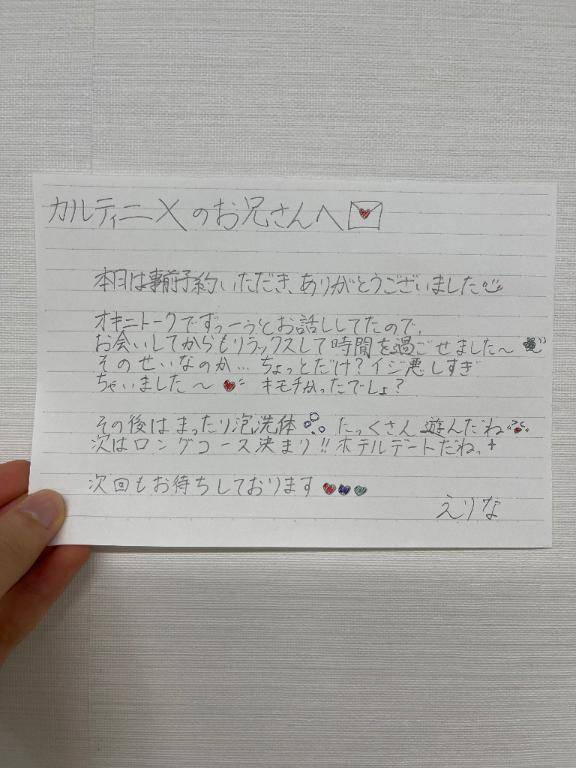 カルティニXのお兄さんへ
本日は事前予約いただき、ありがとうございました
オキニトークでずっーうとお話ししてたので、
お会いしてからもリラックスして時間を過ごせました〜
そのせいなのか… ちょっとだけ?イジ悪しすぎ
ちゃいました〜 キモチかったでしょ?
その後はまったり泡洗体 たっくさん遊んだね
次はロングコース決まり!!ホテルデートだね
次回もお待ちしております
えりな